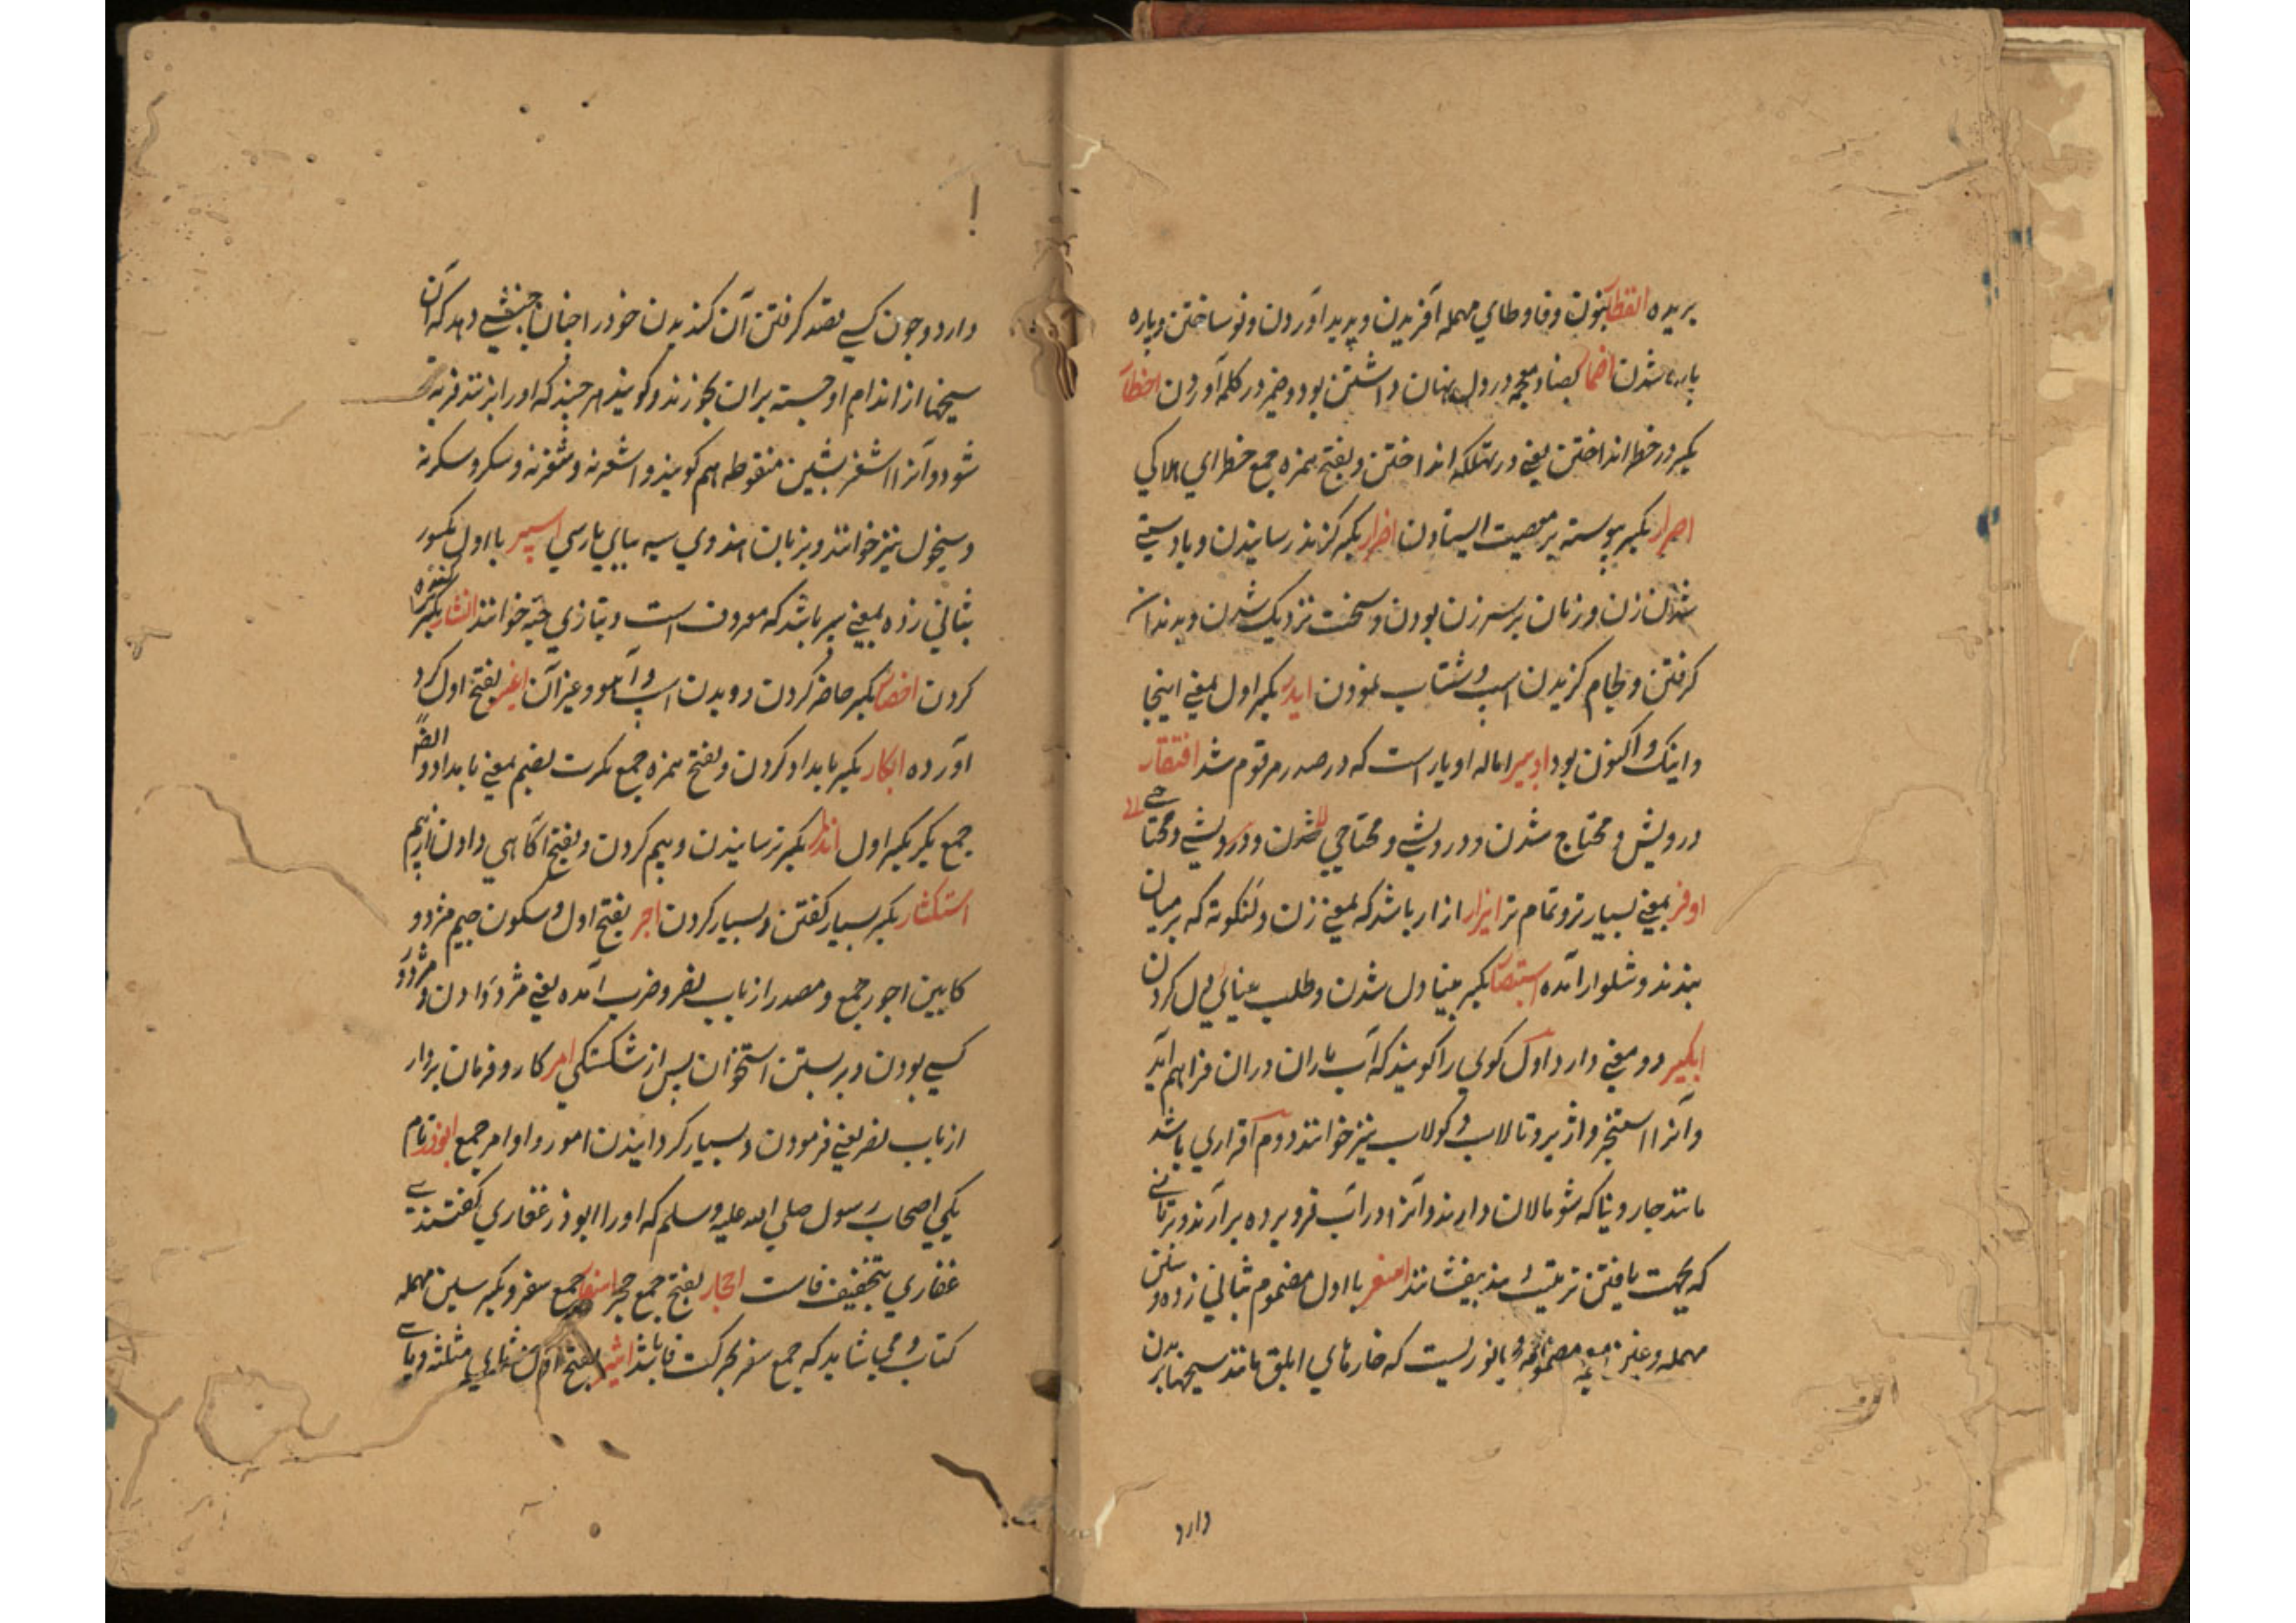 بریده انفطار بنون و فا و طای مهمله آفریدن و پدید آوردن و نو ساختن و پاره
پاره شدن اضمار بضاد معجمه در دل پنهان داشتن بود و ضمیر در کلمه آوردن اخطار
بکسر در خطر انداختن یعنی در تهلکه انداختن و بفتح همزه جمع خطر ای هلاکی
اصرار بکسر پیوسته بر معصیت ایستادن اضرار بکسر گزند رسانیدن و با دستی
شدن زن و زنان بر سر زن بودن و سخت نزدیک شدن و بدندان
گرفتن و لجام گزیدن اسب و شتاب نمودن ایدر بکسر اول بمعنی اینجا
و اینک و اکنون بود اویبر اماله اوبار است که در صدر مرقوم شد افتقار
درویش و محتاج شدن و درویشی و محتاجی
اوفر بمعنی بسیارتر و تمام تر ایزار ازار باشد که بمعنی زن و لنگوته که بر میان
بندند و شلوار آمده استبصار بکسر بینا دل شدن و طلب بینائی دل کردن
آبگیر دو معنی دارد اول کولی را گویند که آب باران در ان فراهم آید
و آنرا استخر و اژیر و تالاب و کولاب نیز خوانند دوم افزاری باشد
مانند جاروب تا که شومالان دارند و آنرا در آب فرو برده بر آرند و بر تانی
که بجهت بافتن ترتیب دهند بیفشانند اسغر با اول مضموم بثانی زده و سین
مهمله و غین معجمه مضمومه جانوریست که خارهای ابلق مانند سیخها بر بدن
دارد
دارد و چون کسی قصد گرفتن آن کند بدن خود را چنان جنبشی دهد که آن
سیخها از اندام او جسته بران بخورند و گویند هر چند که او را بزنند فربه
شود و آنرا اشغر بشین منقوطه هم گویند و اشغرنه و شغرنه و سکر و سکرنه
و سیخول نیز خوانند و بزبان هندوی سیه بیای پارسی اسپر با اول مکسور
بثانی زده بمعنی سپر باشد که معروف است و بتازی جنه خوانند انشار بکسر
کردن احضار بکسر حاضر کردن دویدن اسپ و آهو و غیر آن اغبر بفتح اول گرد
آورده ابکار بکسر بامداد کردن و بفتح همزه جمع بکرت بضم بمعنی بامداد و ایضا
جمع بکر بکسر اول انذار بکسر ترسانیدن و بیم کردن و بفتح آگاهی دادن از بیم
استکثار بکسر بسیار گفتن و بسیار کردن اجر بفتح اول و سکون جیم مزد و
کابین اجور جمع و مصدر از باب نصر و ضرب آمده یعنی مزد دادن و مزدور
کسی بودن و بربستن استخوان پس از شکستگی امر کار و فرمان بردار
از باب نصر یعنی فرمودن و بسیار گردانیدن امور و اوامر جمع ابوذر نام
یکی اصحاب رسول صلی الله علیه وسلم که او را ابوذر غفاری گفتندی
غفاری بتخفیف فاست احجار بفتح جمع حجر اسفار جمع سفر و بکسر سین مهمله
کتاب و می شاید که جمع سفر بحرکت فا باشد اثیر بفتح اول و ثای مثلثه و یای